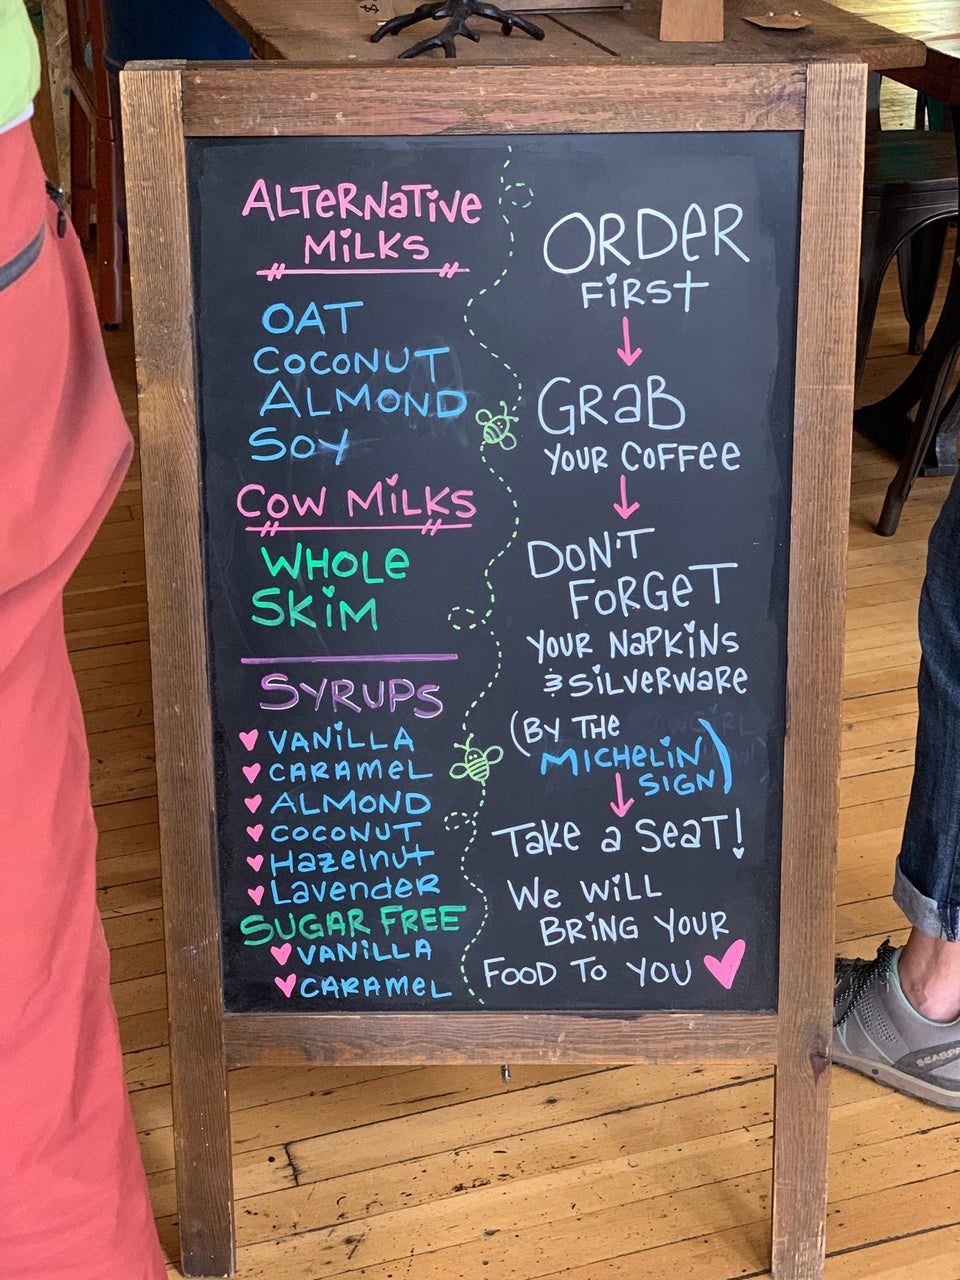 ALTERNATIVE
MILKS
OAT
COCONUT
ALMOND
SOY
COW MILKS
WHOLE
SKIM
SYRUPS
VANILLA
CARAMEL
ALMOND
COCONUT
HAZELNUT
LAVENDER
SUGAR FREE
VANILLA
CARAMEL
ORDER
FIRST
GRAB
YOUR COFFEE
DON'T
FORGET
YOUR NAPKINS
& SILVERWARE
(BY THE
MICHELIN
SIGN)
TAKE A SEAT!
WE WILL
BRING YOUR
FOOD TO YOU
SCARPA